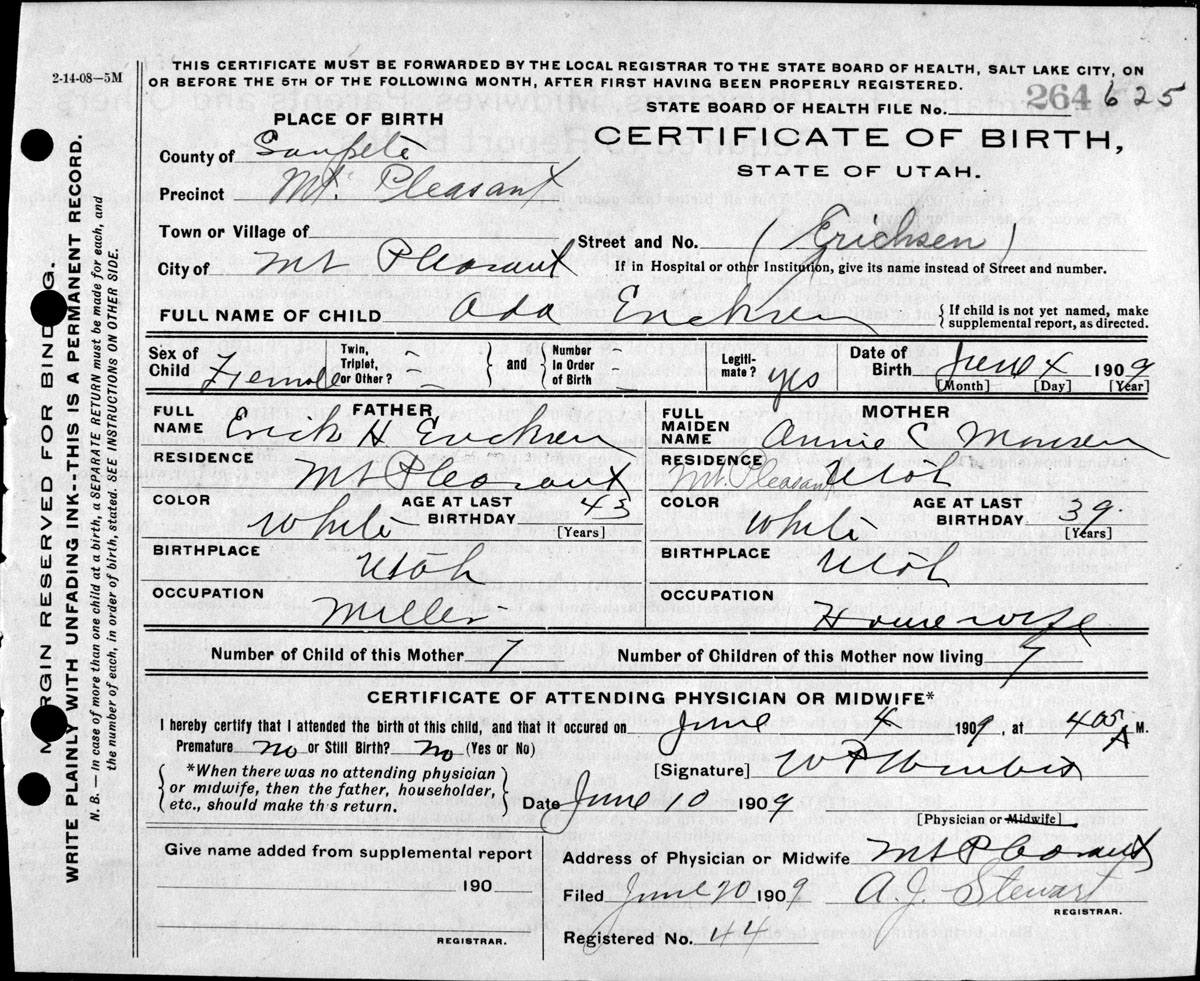 2-14-08—5M
THIS CERTIFICATE MUST BE FORWARDED BY THE LOCAL REGISTRAR TO THE STATE BOARD OF HEALTH, SALT LAKE CITY, ON
OR BEFORE THE 5TH OF THE FOLLOWING MONTH, AFTER FIRST HAVING BEEN PROPERLY REGISTERED.
STATE BOARD OF HEALTH FILE No. 264 625
PLACE OF BIRTH
CERTIFICATE OF BIRTH,
STATE OF UTAH.
County of Sanpete
Precinct Mt. Pleasant
Town or Village of
Street and No. (Erichsen)
City of Mt Pleasant
If in Hospital or other Institution, give its name instead of Street and number.
FULL NAME OF CHILD Ada Ericksen
{ If child is not yet named, make
supplemental report, as directed.
Sex of Child Female
Twin, Triplet, or Other? —
and
Number In Order of Birth —
Legiti-mate? yes
Date of Birth June 4 1909
[Month] [Day] [Year]
FATHER
FULL NAME Erick H Ericksen
RESIDENCE Mt Pleasant
COLOR White
AGE AT LAST BIRTHDAY 43
[Years]
BIRTHPLACE Utah
OCCUPATION Miller
MOTHER
FULL MAIDEN NAME Annie C Monsen
RESIDENCE Mt. Pleasant Utah
COLOR White
AGE AT LAST BIRTHDAY 39
[Years]
BIRTHPLACE Utah
OCCUPATION House wife
Number of Child of this Mother 7
Number of Children of this Mother now living 7
CERTIFICATE OF ATTENDING PHYSICIAN OR MIDWIFE*
I hereby certify that I attended the birth of this child, and that it occured on June 4 1909, at 4 05 A M.
Premature No or Still Birth? No (Yes or No)
*When there was no attending physician
or midwife, then the father, householder,
etc., should make this return.
[Signature] W P
Date June 10 1909
[Physician or Midwife]
Give name added from supplemental report
190
REGISTRAR.
Address of Physician or Midwife Mt Pleasant
Filed June 20 1909 A. J. Stewart
REGISTRAR.
Registered No. 44
MARGIN RESERVED FOR BINDING.
WRITE PLAINLY WITH UNFADING INK--THIS IS A PERMANENT RECORD.
N. B. — In case of more than one child at birth, a SEPARATE RETURN must be made for each, and
the number of each, in order of birth, stated. SEE INSTRUCTIONS ON OTHER SIDE.